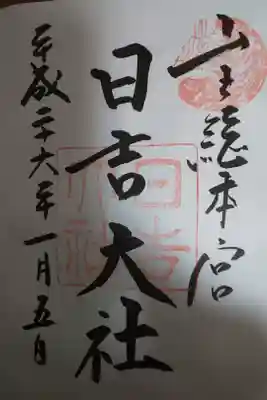 山王総本宮
日吉大社
平成二十六年一月五日
日吉大社